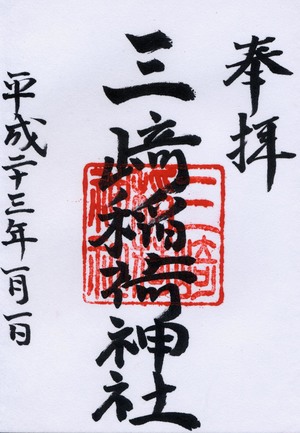 奉拝
三﨑稲荷神社
平成二十三年一月一日